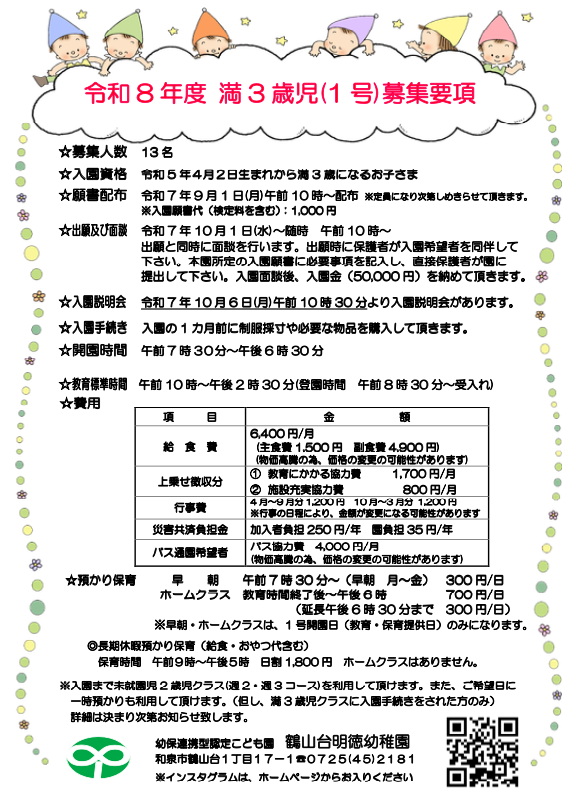 令和８年度 満３歳児(１号)募集要項
☆募集人数 13名
☆入園資格 令和５年４月２日生まれから満３歳になるお子さま
☆願書配布 令和７年９月１日(月)午前１０時～配布 ※定員になり次第しめきらせて頂きます。
※入園願書代（検定料を含む）：1,000円
☆出願及び面談 令和７年１０月１日(水)～随時 午前１０時～
出願と同時に面談を行います。出願時に保護者が入園希望者を同伴して
下さい。本園所定の入園願書に必要事項を記入し、直接保護者が園に
提出して下さい。入園面談後、入園金（50,000円）を納めて頂きます。
☆入園説明会 令和７年１０月６日(月)午前１０時３０分より入園説明会があります。
☆入園手続き 入園の１カ月前に制服採寸や必要な物品を購入して頂きます。
☆開園時間 午前７時３０分～午後６時３０分
☆教育標準時間 午前１０時～午後２時３０分(登園時間 午前８時３０分～受入れ)
☆費用
項 目 金 額
給 食 費 6,400円/月
（主食費1,500円 副食費4,900円）
（物価高騰の為、価格の変更の可能性があります）
上乗せ徴収分 ① 教育にかかる協力費 1,700円/月
② 施設充実協力費 800円/月
行事費 ４月～９月分1,200円 １０月～３月分 1,200円
※行事の日程により、金額が変更になる可能性があります
災害共済負担金 加入者負担250円/年 園負担35円/年
バス通園希望者 バス協力費 4,000円/月
（物価高騰の為、価格の変更の可能性があります）
☆預かり保育 早 朝 午前７時３０分～（早朝 月～金） 300円/日
ホームクラス 教育時間終了後～午後６時 700円/日
（延長午後６時３０分まで 300円/日）
※早朝・ホームクラスは、１号開園日（教育・保育提供日）のみになります。
◎長期休暇預かり保育（給食・おやつ代含む）
保育時間 午前９時～午後５時 日割1,800円 ホームクラスはありません。
※入園まで未就園児２歳児クラス(週２・週３コース)を利用して頂けます。また、ご希望日に
一時預かりも利用して頂けます。（但し、満３歳児クラスに入園手続きをされた方のみ）
詳細は決まり次第お知らせ致します。
幼保連携型認定こども園 鶴山台明徳幼稚園
和泉市鶴山台１丁目１７－１☎０７２５(４５)２１８１
※インスタグラムは、ホームページからお入りください